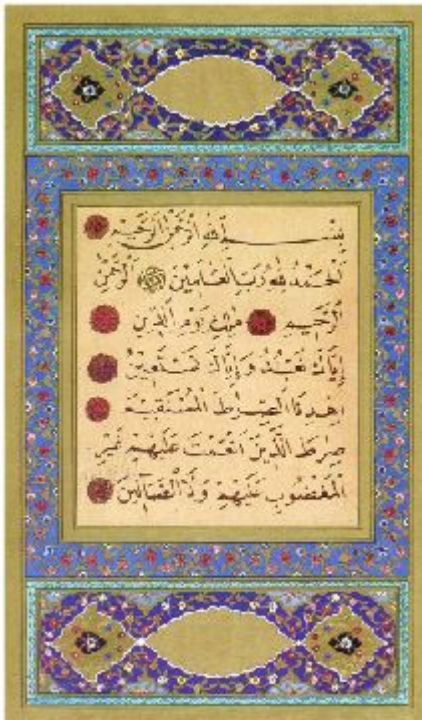 بسم الله الرحمن الرحيم
الحمد لله رب العالمين الرحمن
الرحيم ملك يوم الدين
إياك نعبد وإياك نستعين
اهدنا الصراط المستقيم
صراط الذين انعمت عليهم غير
المغضوب عليهم ولا الضالين